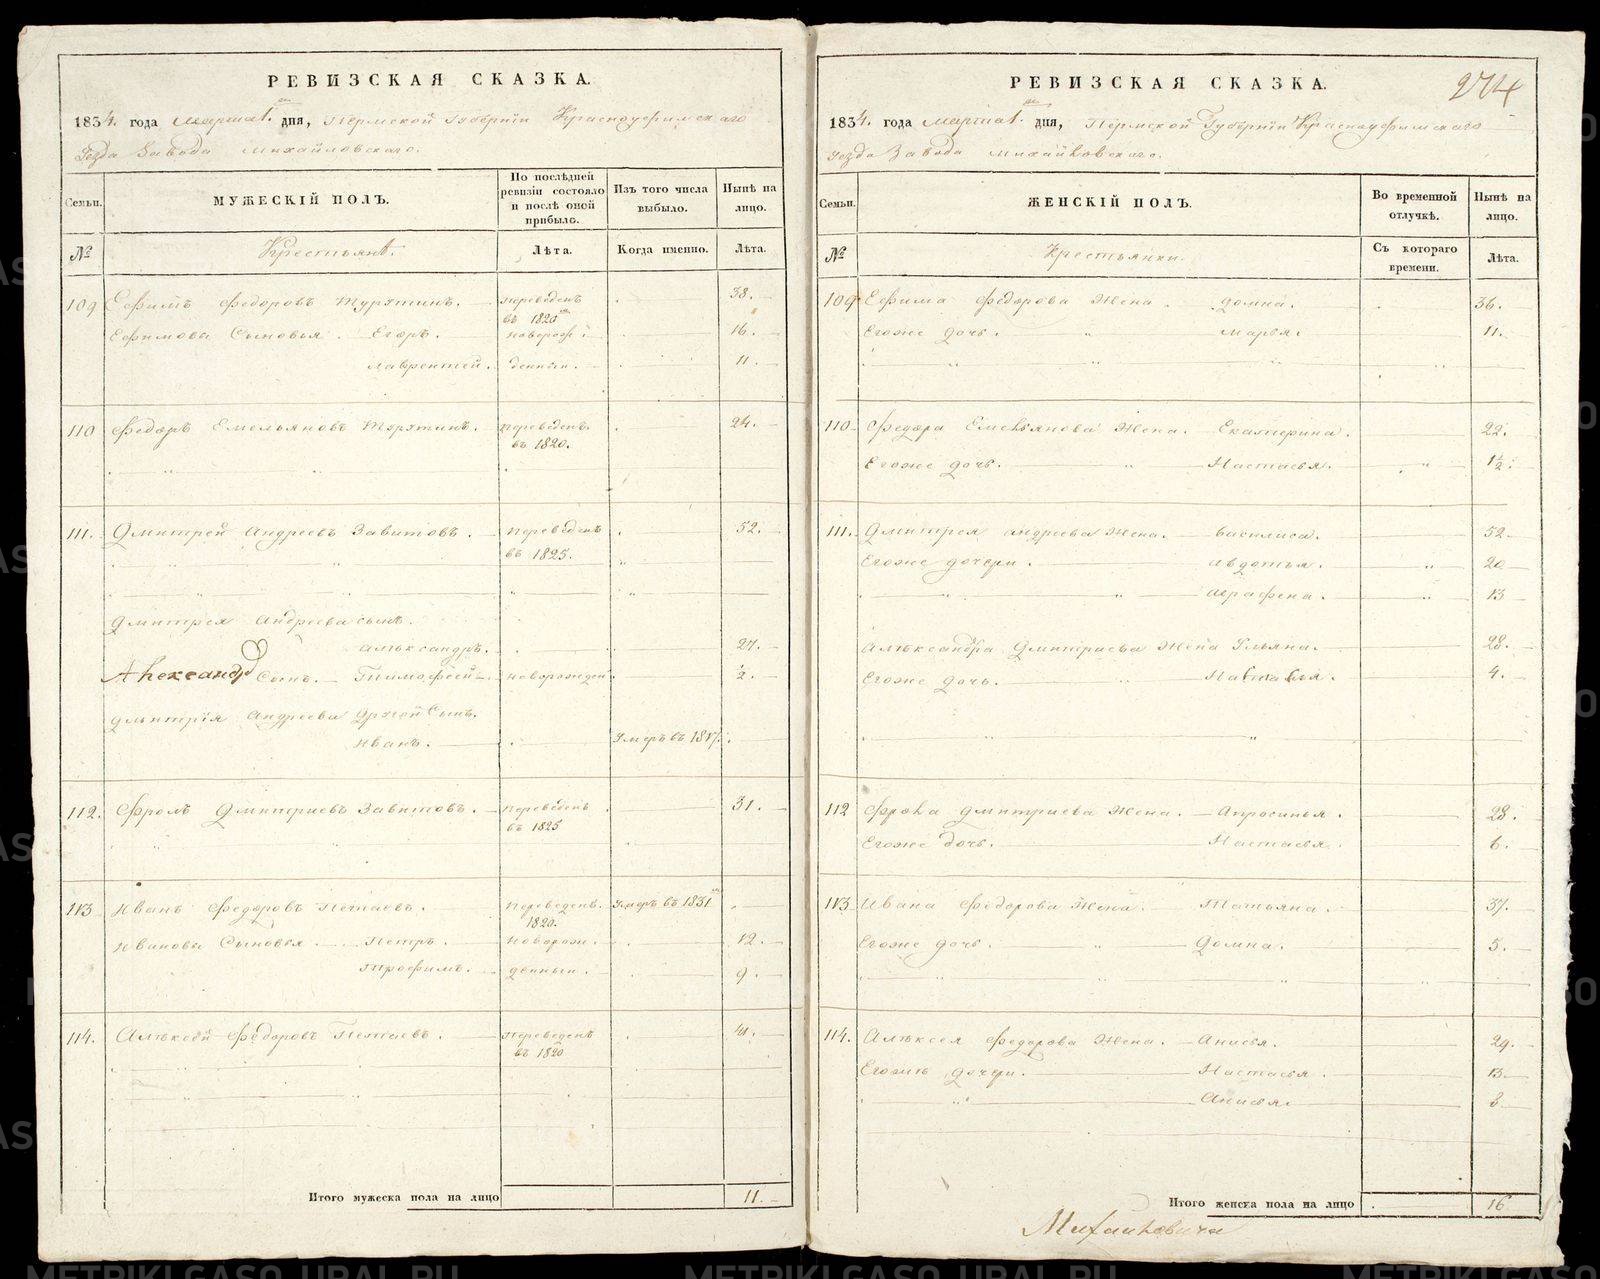 РЕВИЗСКАЯ СКАЗКА.
1834. года марта дня, Пермской Губерніи Красноуфимскаго
Уезда Завода Михайловскаго.
Семьи.
МУЖЕСКІЙ ПОЛЪ.
По послѣдней ревизіи состояло и послѣ оной прибыло.
Изъ того числа выбыло.
Нынѣ на лицо.
№
Крестьяне.
Лѣта.
Когда именно.
Лѣта.
109 Ефимъ Федоровъ переведенъ 38.
въ 1820
Ефимовы Сыновья. Егоръ. новорож 16.
Лаврентей. денныи. 11.
110 Федоръ Емельяновъ переведенъ 24.
въ 1820.
111. Дмитрей Андреевъ Завитовъ. переведенъ 52.
въ 1825.
Дмитрея Андреева сынъ.
Александръ. 27.
Александр Сынъ. Тимофей новорожден ½.
Дмитрія Андреева Другой Сынъ.
Иванъ. Умеръ въ
112. Фролъ Дмитриевъ Завитовъ. переведенъ 31.
въ 1825
113 Иванъ Федоровъ переведенъ Умеръ въ 1831
1820.
Ивановы Сыновья. Петръ. новорож. 12.
Трофимъ. денныи. 9.
114. Алексей Федоровъ Переведенъ 41.
въ 1820
Итого мужеска пола на лицо 11.
РЕВИЗСКАЯ СКАЗКА. 274
1834. года марта дня, Пермской Губерніи Красноуфимскаго
Уезда Завода Михайловскаго.
Семьи.
ЖЕНСКІЙ ПОЛЪ.
Во временной отлучкѣ.
Нынѣ на лицо.
№
Крестьянки.
Съ котораго времени.
Лѣта.
109 Ефима Федорова Жена. Домна. 36.
Егоже дочь. Марья. 11.
110 Федора Емельянова Жена. Екатерина. 22.
Егоже дочь. Настасья. 1½.
111. Дмитрея Андреева Жена. Василиса. 52.
Егоже дочери. Авдотья. 20
Аграфена. 13
Александра Дмитриева Жена Ульяна. 28.
Егоже дочь. 4.
112 Фрола Дмитриева Жена. Апросинья. 28.
Егоже дочь. Настасья. 6.
113 Ивана Федорова Жена. Татьяна. 37.
Егоже дочь. Домна. 5.
114. Алексея Федорова Жена. Анисья. 29.
Егоже дочери. Настасья. 13.
Анисья. 8
Итого женска пола на лицо 16
METRIKI.GASO-URAL.RU
METRIKI.GASO-URAL.RU
METRIKI.GASO-URAL.RU